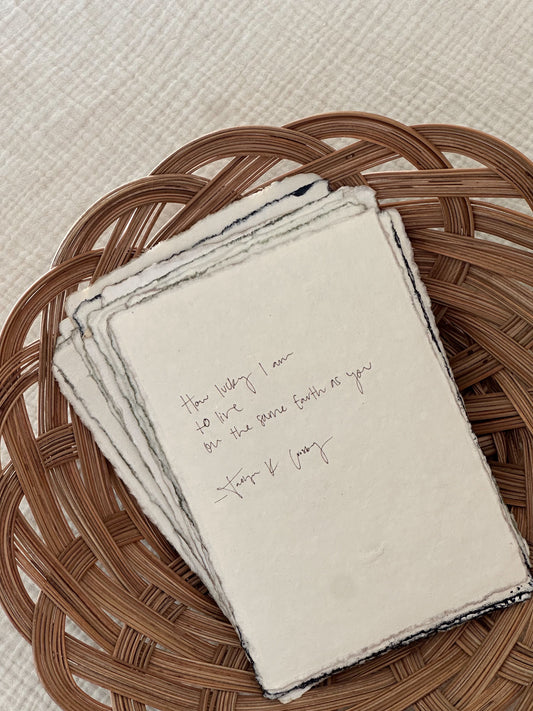 How lucky I am
to live
on the same Earth as you
K